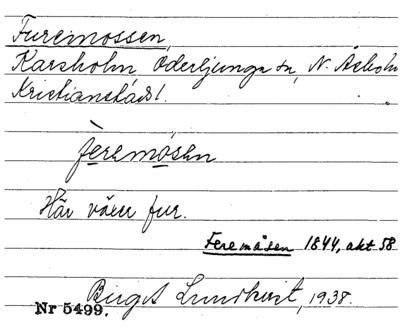 Furemossen,
Karsholm, Oderljunga sn, N. Åsbo h
Kristianstads l.
fèremósen
Här växer fur.
Feremåsen 1844, akt 58
Birgit Lundkvist, 1938.
Nr 5499.